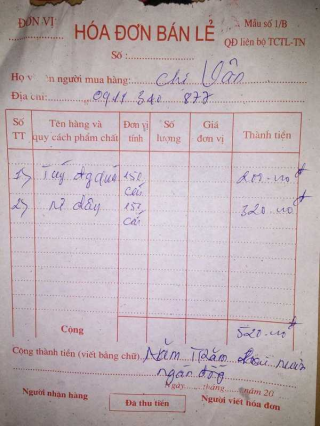 ĐƠN VỊ
HÓA ĐƠN BÁN LẺ
Mẫu số 1/B
QĐ liên bộ TCTL-TN
Số :
Họ người mua hàng: chị Vân
Địa chỉ: 0941 340 877
Số TT Tên hàng và quy cách phẩm chất Đơn vị tính Số lượng Giá đơn vị Thành tiền
1) Túi 150 cái 200.000đ
2) dây cái 320.000đ
Cộng 520.000đ
Cộng thành tiền (viết bằng chữ) Năm Trăm Hai mươi
ngàn đồng
Ngày tháng năm 20
Người nhận hàng Đã thu tiền Người viết hóa đơn